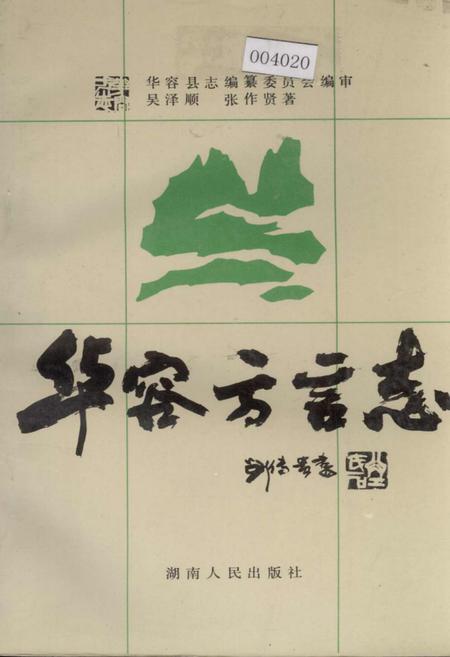 004020
华容县志编纂委员会编审
吴泽顺 张作贤著
华容方言志
湖南人民出版社